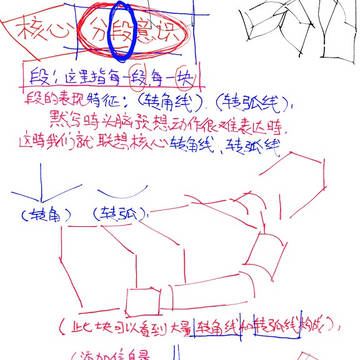 核心 分段意识
段：这里指每一段每一块
段的表现特征：（转角线）（转弧线），
默写时头脑预想动作很难表达时，
这时我们就联想核心转角线、转弧线
（转角）（转弧），
（此块可以看到大量转角线和转弧线构成），
（添加信息量